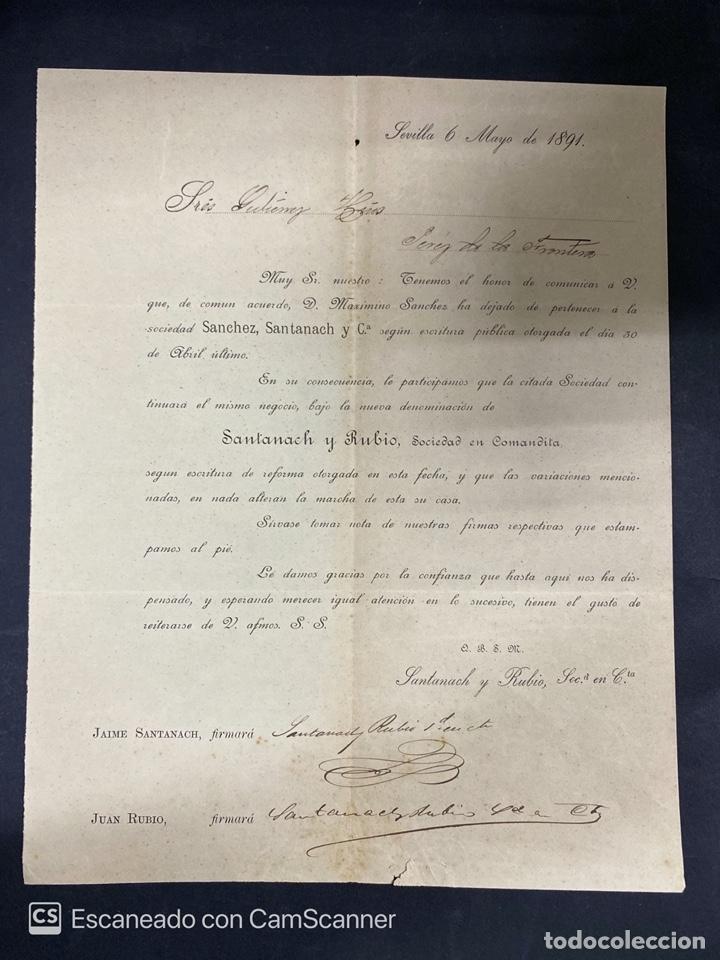 Sevilla 6 Mayo de 1891.
Sres Gutierrez Hnos
Jerez de la Frontera
Muy Sr. nuestro: Tenemos el honor de comunicar á V.
que, de comun acuerdo, D. Maximino Sanchez ha dejado de pertenecer á la
sociedad Sanchez, Santanach y C.ª según escritura pública otorgada el dia 30
de Abril último.
En su consecuencia, le participamos que la citada Sociedad con-
tinuará el mismo negocio, bajo la nueva denominación de
Santanach y Rubio, Sociedad en Comandita,
segun escritura de reforma otorgada en esta fecha, y que las variaciones mencio-
nadas, en nada alteran la marcha de esta su casa.
Sírvase tomar nota de nuestras firmas respectivas que estam-
pamos al pié.
Le damos gracias por la confianza que hasta aquí nos ha dis-
pensado, y esperando merecer igual atención en lo sucesivo, tienen el gusto de
reiterarse de V. afmos. S. S.
Q. B. S. M.
Santanach y Rubio, Soc.d en C.ta
JAIME SANTANACH, firmará Santanach y Rubio Sd en Cta
JUAN RUBIO, firmará Santanach y Rubio Sd en Cta
CS Escaneado con CamScanner
todocoleccion